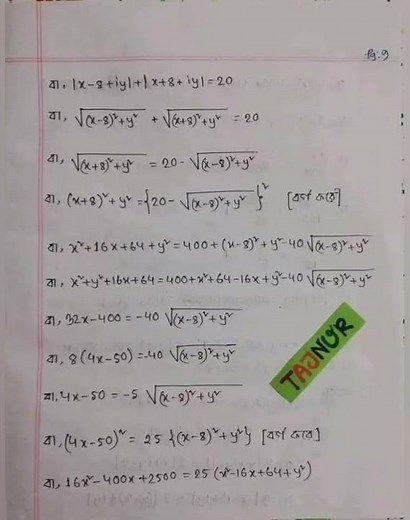 Pg-9
বা, |x-8+iy|+|x+8+iy|=20
বা, √(x-8)²+y² + √(x+8)²+y² = 20
বা, √(x+8)²+y² = 20-√(x-8)²+y²
বা, (x+8)²+y² = {20-√(x-8)²+y²}² [বর্গ করে]
বা, x²+16x+64+y²=400+(x-8)²+y²-40√(x-8)²+y²
বা, x²+y²+16x+64=400+x²+64-16x+y²-40√(x-8)²+y²
বা, 32x-400=-40√(x-8)²+y²
বা, 8(4x-50)=-40√(x-8)²+y²
বা, 4x-50=-5√(x-8)²+y²
TAJNUR
বা, (4x-50)² = 25{(x-8)²+y²} [বর্গ করে]
বা, 16x²-400x+2500=25(x²-16x+64+y²)